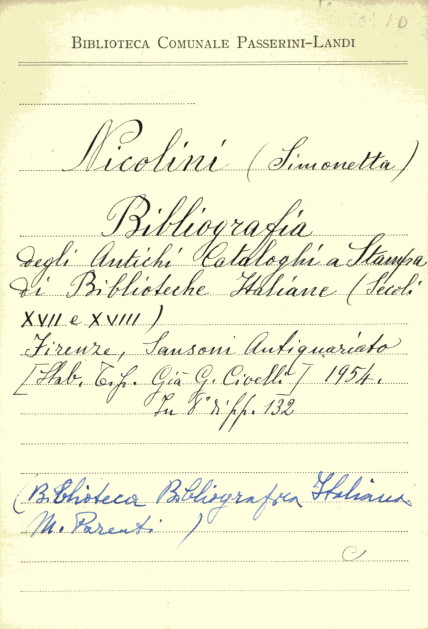 BIBLIOTECA COMUNALE PASSERINI-LANDI
Nicolini (Simonetta)
Bibliografia
degli Antichi Cataloghi a Stampa
di Biblioteche Italiane (Secoli
XVII e XVIII)
Firenze, Sansoni Antiquariato
[Stab. Tip. Già G. Civelli] 1954.
In 8° di pp. 132
(Biblioteca Bibliografica Italiana.
M. Parenti)